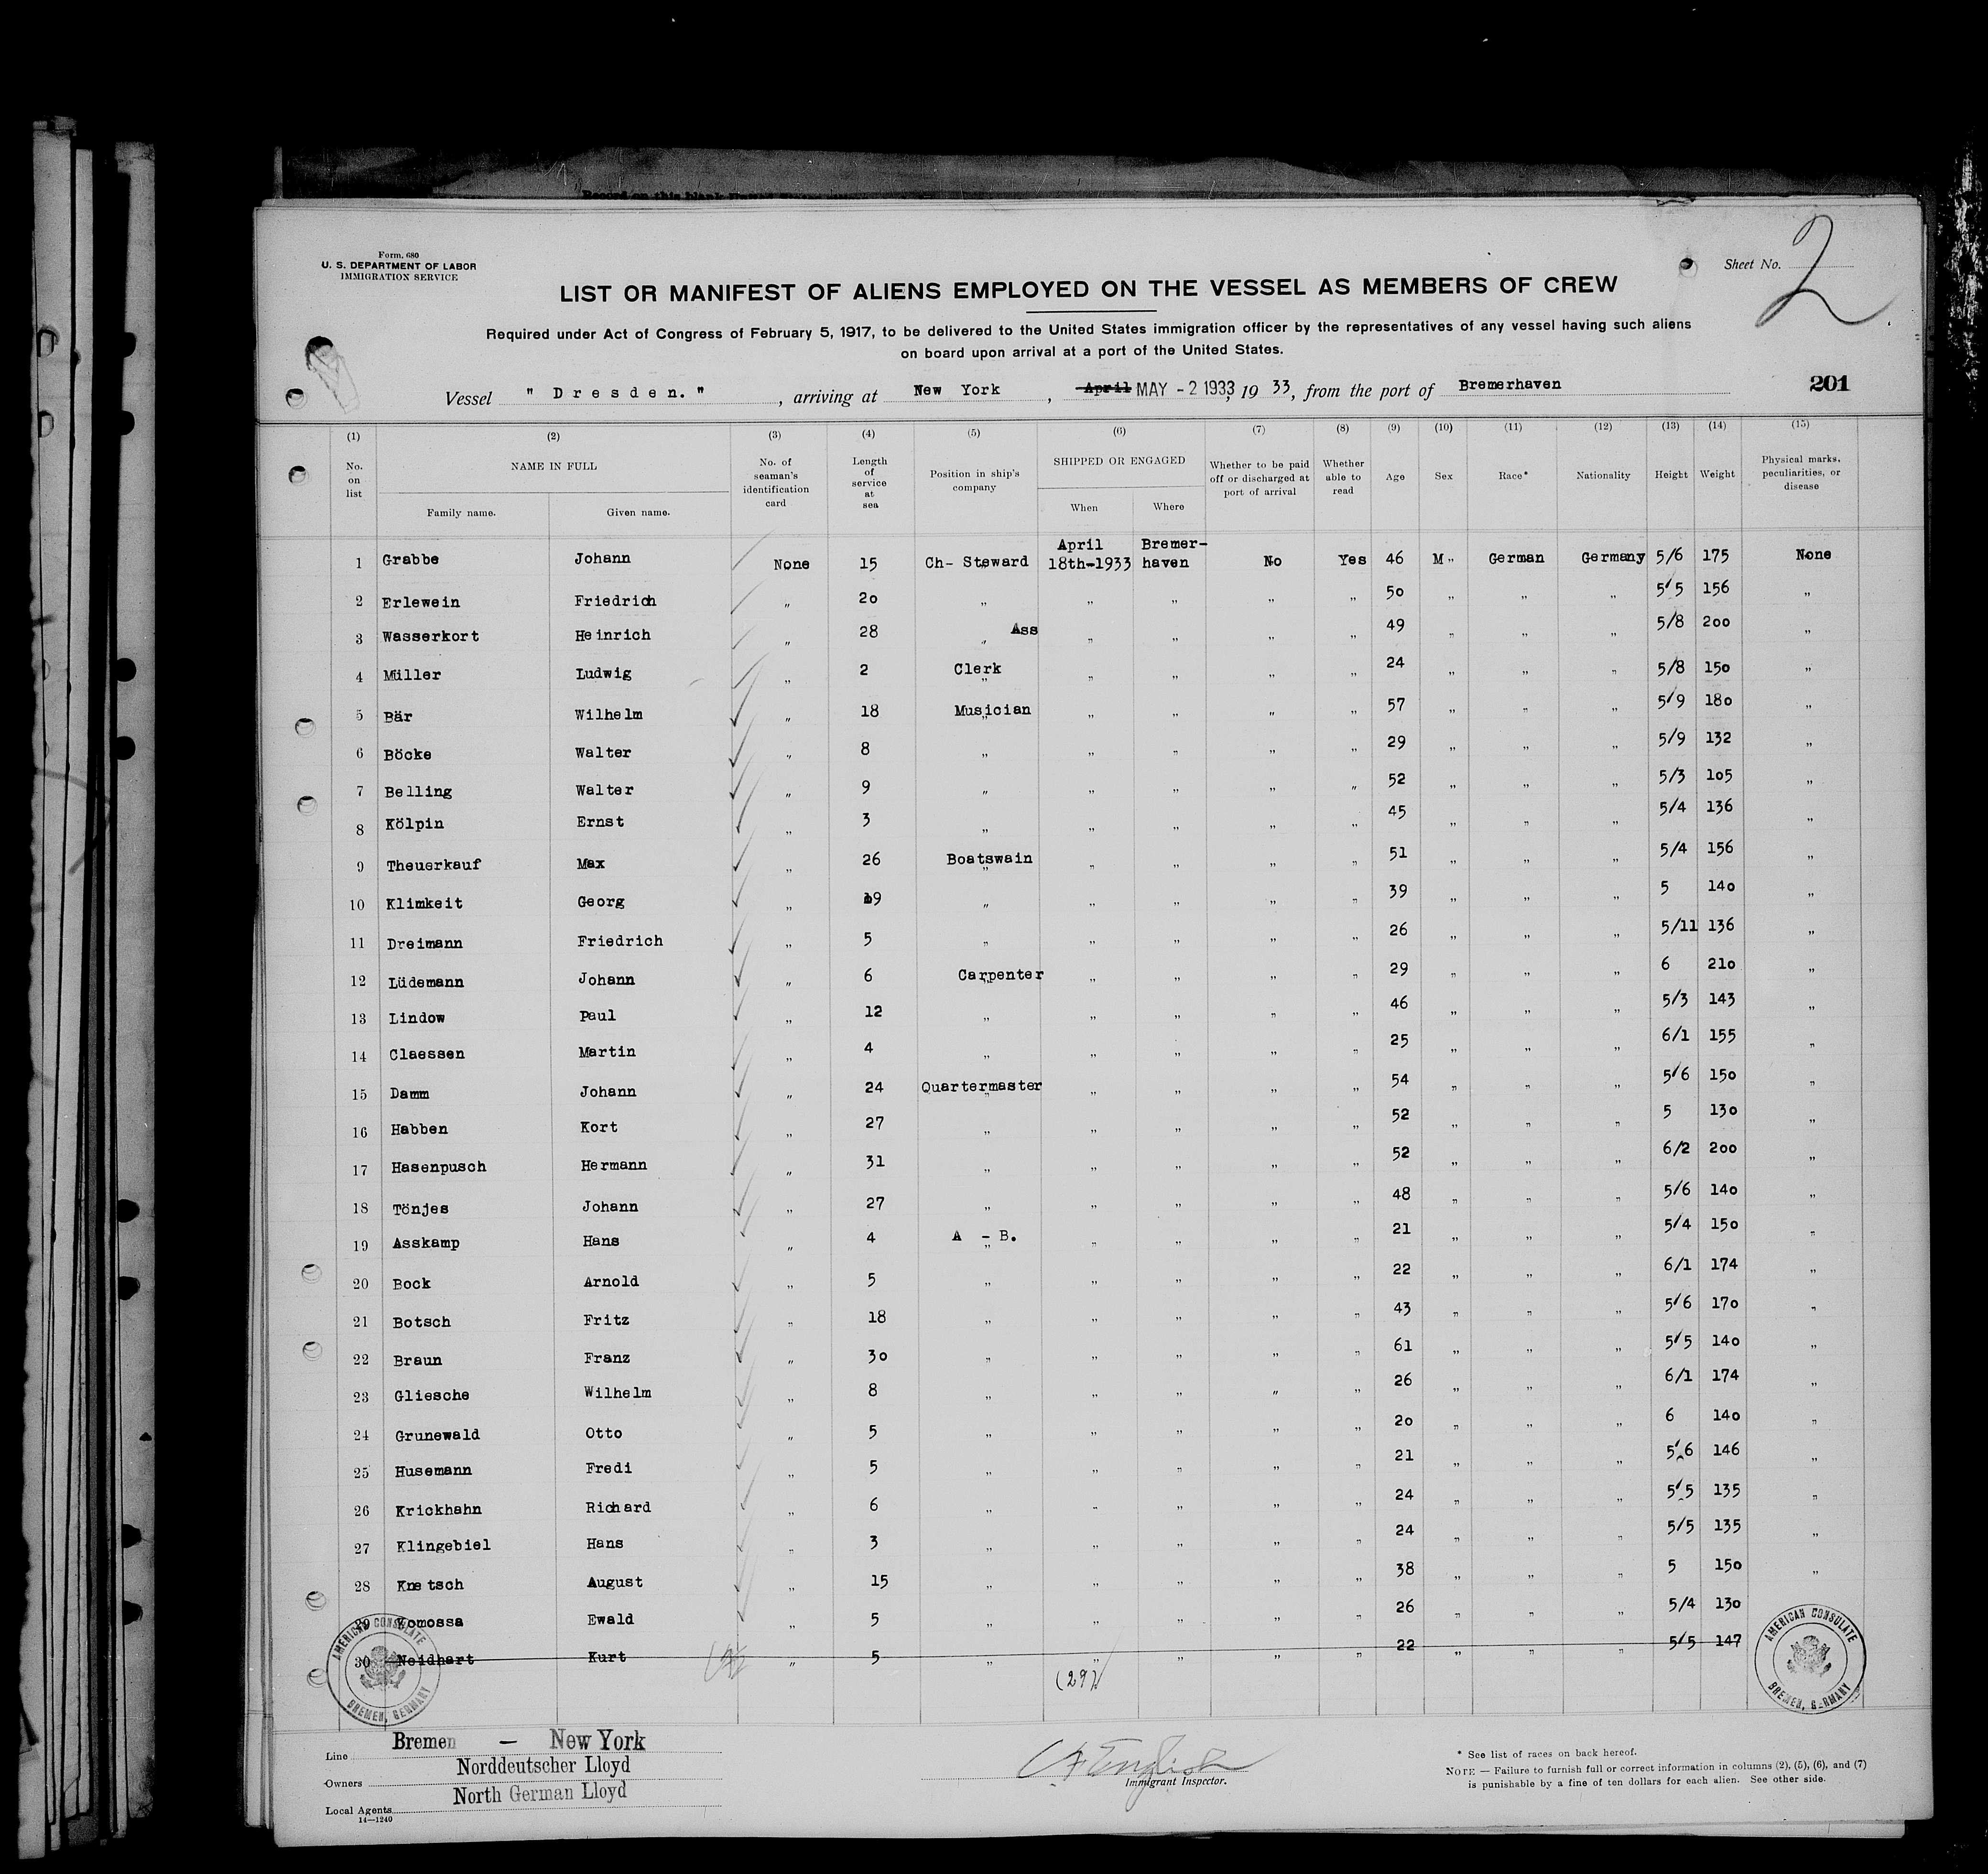 Form. 680
U. S. DEPARTMENT OF LABOR
IMMIGRATION SERVICE
Sheet No. 2
LIST OR MANIFEST OF ALIENS EMPLOYED ON THE VESSEL AS MEMBERS OF CREW
Required under Act of Congress of February 5, 1917, to be delivered to the United States immigration officer by the representatives of any vessel having such aliens
on board upon arrival at a port of the United States.
Vessel " D r e s d e n. " , arriving at New York , April MAY - 2 1933, 19 33, from the port of Bremerhaven 201
(1) (2) (3) (4) (5) (6) (7) (8) (9) (10) (11) (12) (13) (14) (15)
No. on list NAME IN FULL Family name. Given name. No. of seaman's identification card Length of service at sea Position in ship's company SHIPPED OR ENGAGED When Where Whether to be paid off or discharged at port of arrival Whether able to read Age Sex Race* Nationality Height Weight Physical marks, peculiarities, or disease
1 Grabbe Johann None 15 Ch- Steward April 18th-1933 Bremer-haven No Yes 46 M " German Germany 5/6 175 None
2 Erlewein Friedrich " 20 " " " " " 50 " " " 5/5 156 "
3 Wasserkort Heinrich " 28 " Ass " " " " 49 " " " 5/8 200 "
4 Müller Ludwig " 2 Clerk " " " " 24 " " " 5/8 150 "
5 Bär Wilhelm " 18 Musician " " " " 57 " " " 5/9 180 "
6 Böcke Walter " 8 " " " " " 29 " " " 5/9 132 "
7 Belling Walter " 9 " " " " " 52 " " " 5/3 105 "
8 Kölpin Ernst " 3 " " " " " 45 " " " 5/4 136 "
9 Theuerkauf Max " 26 Boatswain " " " " 51 " " " 5/4 156 "
10 Klimkeit Georg " 19 " " " " " 39 " " " 5 140 "
11 Dreimann Friedrich " 5 " " " " " 26 " " " 5/11 136 "
12 Lüdemann Johann " 6 Carpenter " " " " 29 " " " 6 210 "
13 Lindow Paul " 12 " " " " " 46 " " " 5/3 143 "
14 Claessen Martin " 4 " " " " " 25 " " " 6/1 155 "
15 Damm Johann " 24 Quartermaster " " " " 54 " " " 5/6 150 "
16 Habben Kort " 27 " " " " " 52 " " " 5 130 "
17 Hasenpusch Hermann " 31 " " " " " 52 " " " 6/2 200 "
18 Tönjes Johann " 27 " " " " " 48 " " " 5/6 140 "
19 Asskamp Hans " 4 A - B. " " " " 21 " " " 5/4 150 "
20 Bock Arnold " 5 " " " " " 22 " " " 6/1 174 "
21 Botsch Fritz " 18 " " " " " 43 " " " 5/6 170 "
22 Braun Franz " 30 " " " " " 61 " " " 5/5 140 "
23 Gliesche Wilhelm " 8 " " " " " 26 " " " 6/1 174 "
24 Grunewald Otto " 5 " " " " " 20 " " " 6 140 "
25 Husemann Fredi " 5 " " " " " 21 " " " 5/6 146 "
26 Krickhahn Richard " 6 " " " " " 24 " " " 5/5 135 "
27 Klingebiel Hans " 3 " " " " " 24 " " " 5/5 135 "
28 Knetsch August " 15 " " " " " 38 " " " 5 150 "
29 Komossa Ewald " 5 " " " " " 26 " " " 5/4 130
30 Neidhart Kurt " 5 " " " " " 22 " " " 5/5 147
(29)
AMERICAN CONSULATE BREMEN, GERMANY
AMERICAN CONSULATE BREMEN, GERMANY
Line Bremen - New York
Owners Norddeutscher Lloyd
Local Agents North German Lloyd
14—1240
English
Immigrant Inspector.
* See list of races on back hereof.
NOTE — Failure to furnish full or correct information in columns (2), (5), (6), and (7)
is punishable by a fine of ten dollars for each alien. See other side.